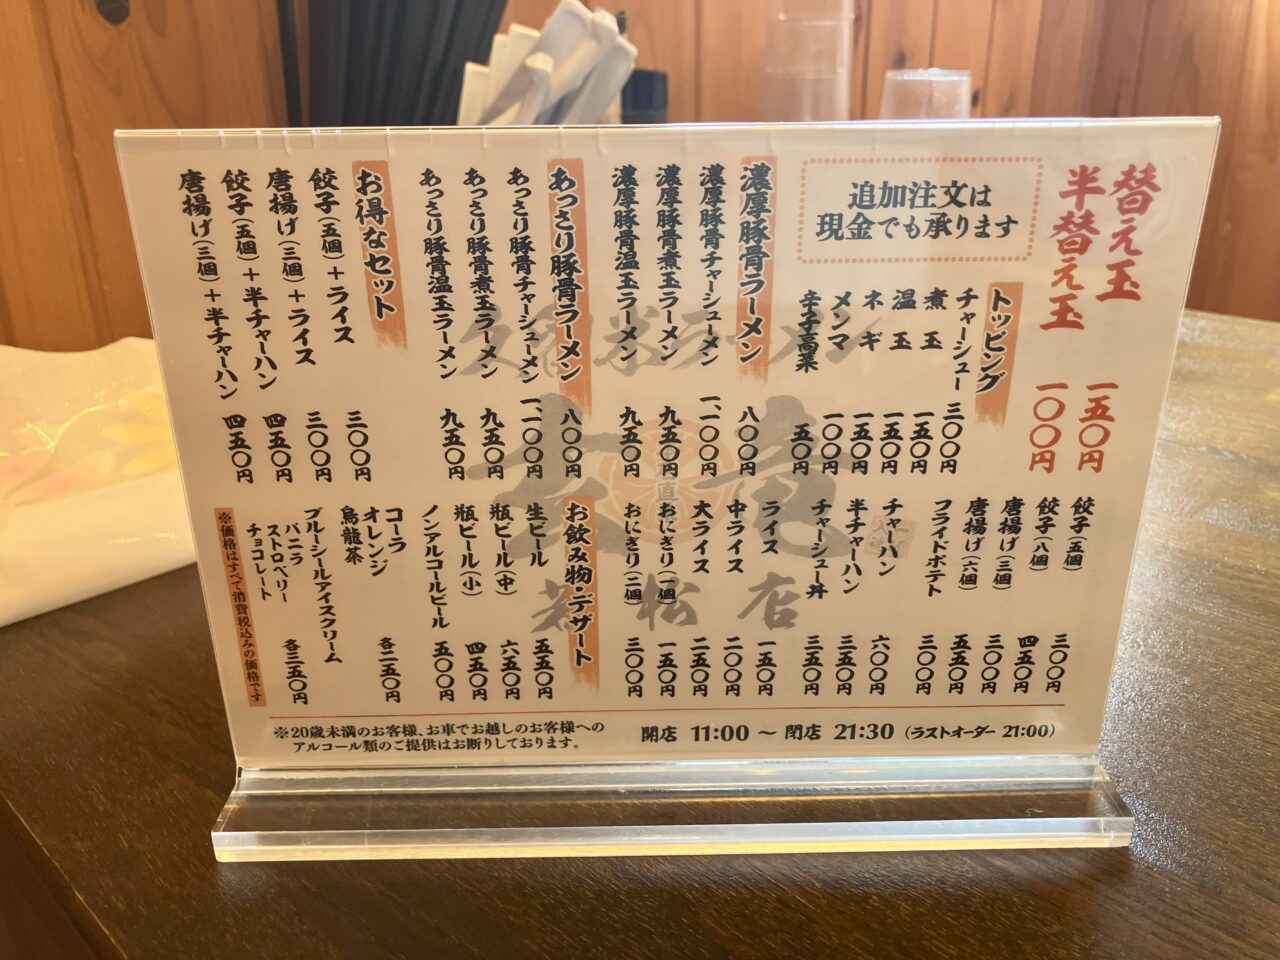 替え玉 一五〇円
半替え玉 一〇〇円
追加注文は
現金でも承ります
トッピング
チャーシュー 三〇〇円
煮玉 一五〇円
温玉 一五〇円
ネギ 一五〇円
メンマ 一〇〇円
辛子高菜 五〇円
濃厚豚骨ラーメン 八〇〇円
濃厚豚骨チャーシューメン 一、一〇〇円
濃厚豚骨煮玉ラーメン 九五〇円
濃厚豚骨温玉ラーメン 九五〇円
あっさり豚骨ラーメン 八〇〇円
あっさり豚骨チャーシューメン 一、一〇〇円
あっさり豚骨煮玉ラーメン 九五〇円
あっさり豚骨温玉ラーメン 九五〇円
お得なセット
餃子(五個)+ライス 三〇〇円
唐揚げ(三個)+ライス 三〇〇円
餃子(五個)+半チャーハン 四五〇円
唐揚げ(三個)+半チャーハン 四五〇円
餃子(五個) 三〇〇円
餃子(八個) 四五〇円
唐揚げ(三個) 三〇〇円
唐揚げ(六個) 五五〇円
フライドポテト 三〇〇円
チャーハン 六〇〇円
半チャーハン 三五〇円
チャーシュー丼 三五〇円
ライス 一五〇円
中ライス 二〇〇円
大ライス 二五〇円
おにぎり(一個) 一五〇円
おにぎり(二個) 三〇〇円
お飲み物・デザート
生ビール 五五〇円
瓶ビール(中) 六五〇円
瓶ビール(小) 四五〇円
ノンアルコールビール 五〇〇円
コーラ
オレンジ
烏龍茶
各二五〇円
ブルーシールアイスクリーム
バニラ
ストロベリー
チョコレート
各三五〇円
※価格はすべて消費税込みの価格です
久留米ラーメン
玄竜
直
若松店
※20歳未満のお客様、お車でお越しのお客様への
アルコール類のご提供はお断りしております。
開店 11:00 〜 閉店 21:30 (ラストオーダー 21:00)